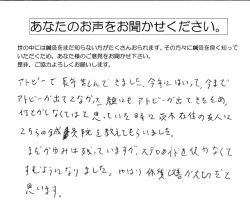 あなたのお声をお聞かせください。
世の中には鍼灸をまだ知らない方がたくさんおられます。その方々に鍼灸を良く知って
いただくため、あなた様のご意見をお聞かせ下さい。
是非、ご協力よろしくお願いします。
アトピーで長年苦しんできました。今年にはいって、今まで
アトピーが出てなかった顔にもアトピーが出てきたため、
何とかしなくてはと思っていた時に茨木在住の友人に
こちらの鍼灸院を教えてもらいました。
まだかゆみは残っていますが、ステロイドを使わなくて
すむようになりました。やはり体質改善が大切だと
思います。